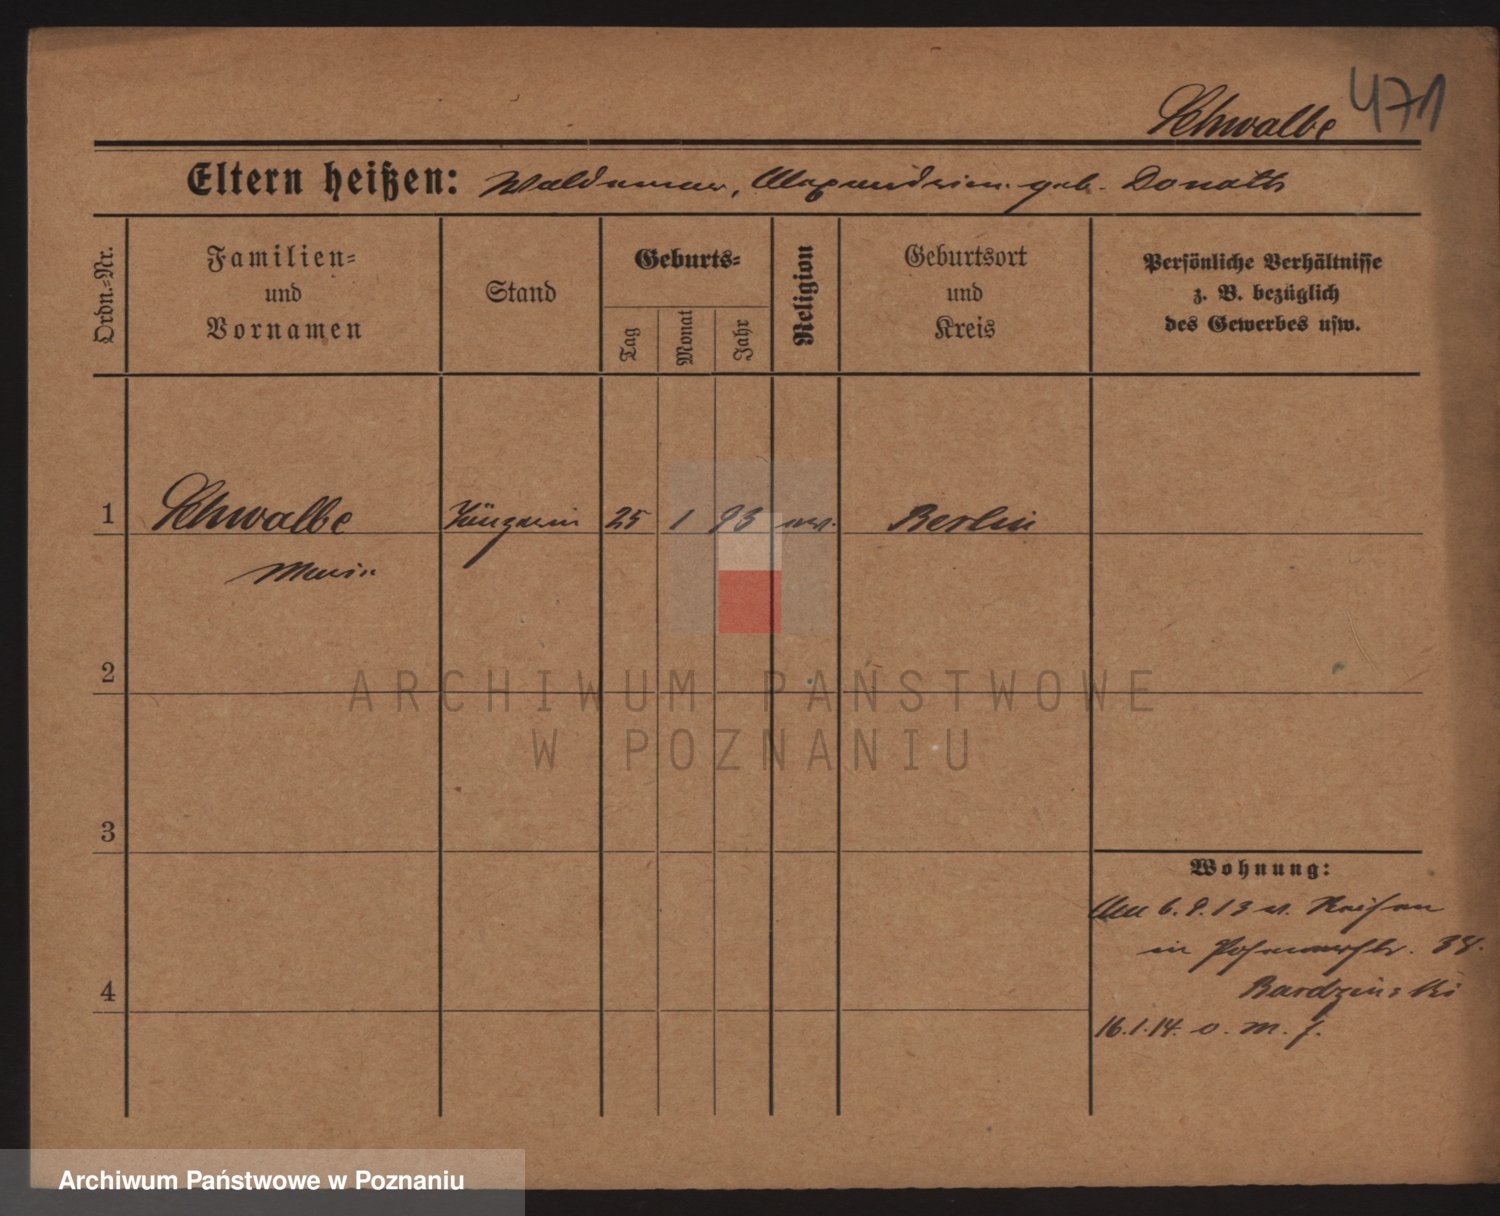 Schwalbe 471
Eltern heißen: Waldemar, Alexandrine geb. Donath
Ordn.-Nr.
Familien-
und
Vornamen
Stand
Geburts-
Tag
Monat
Jahr
Religion
Geburtsort
und
Kreis
Persönliche Verhältnisse
z. B. bezüglich
des Gewerbes usw.
1 Schwalbe 25 1 93 Berlin
Marie
2
ARCHIWUM PAŃSTWOWE
W POZNANIU
3
Wohnung:
6. 9. 13 v.
in 38.
4 Bardzinski
16.1.14. o. M. 7.
Archiwum Państwowe w Poznaniu